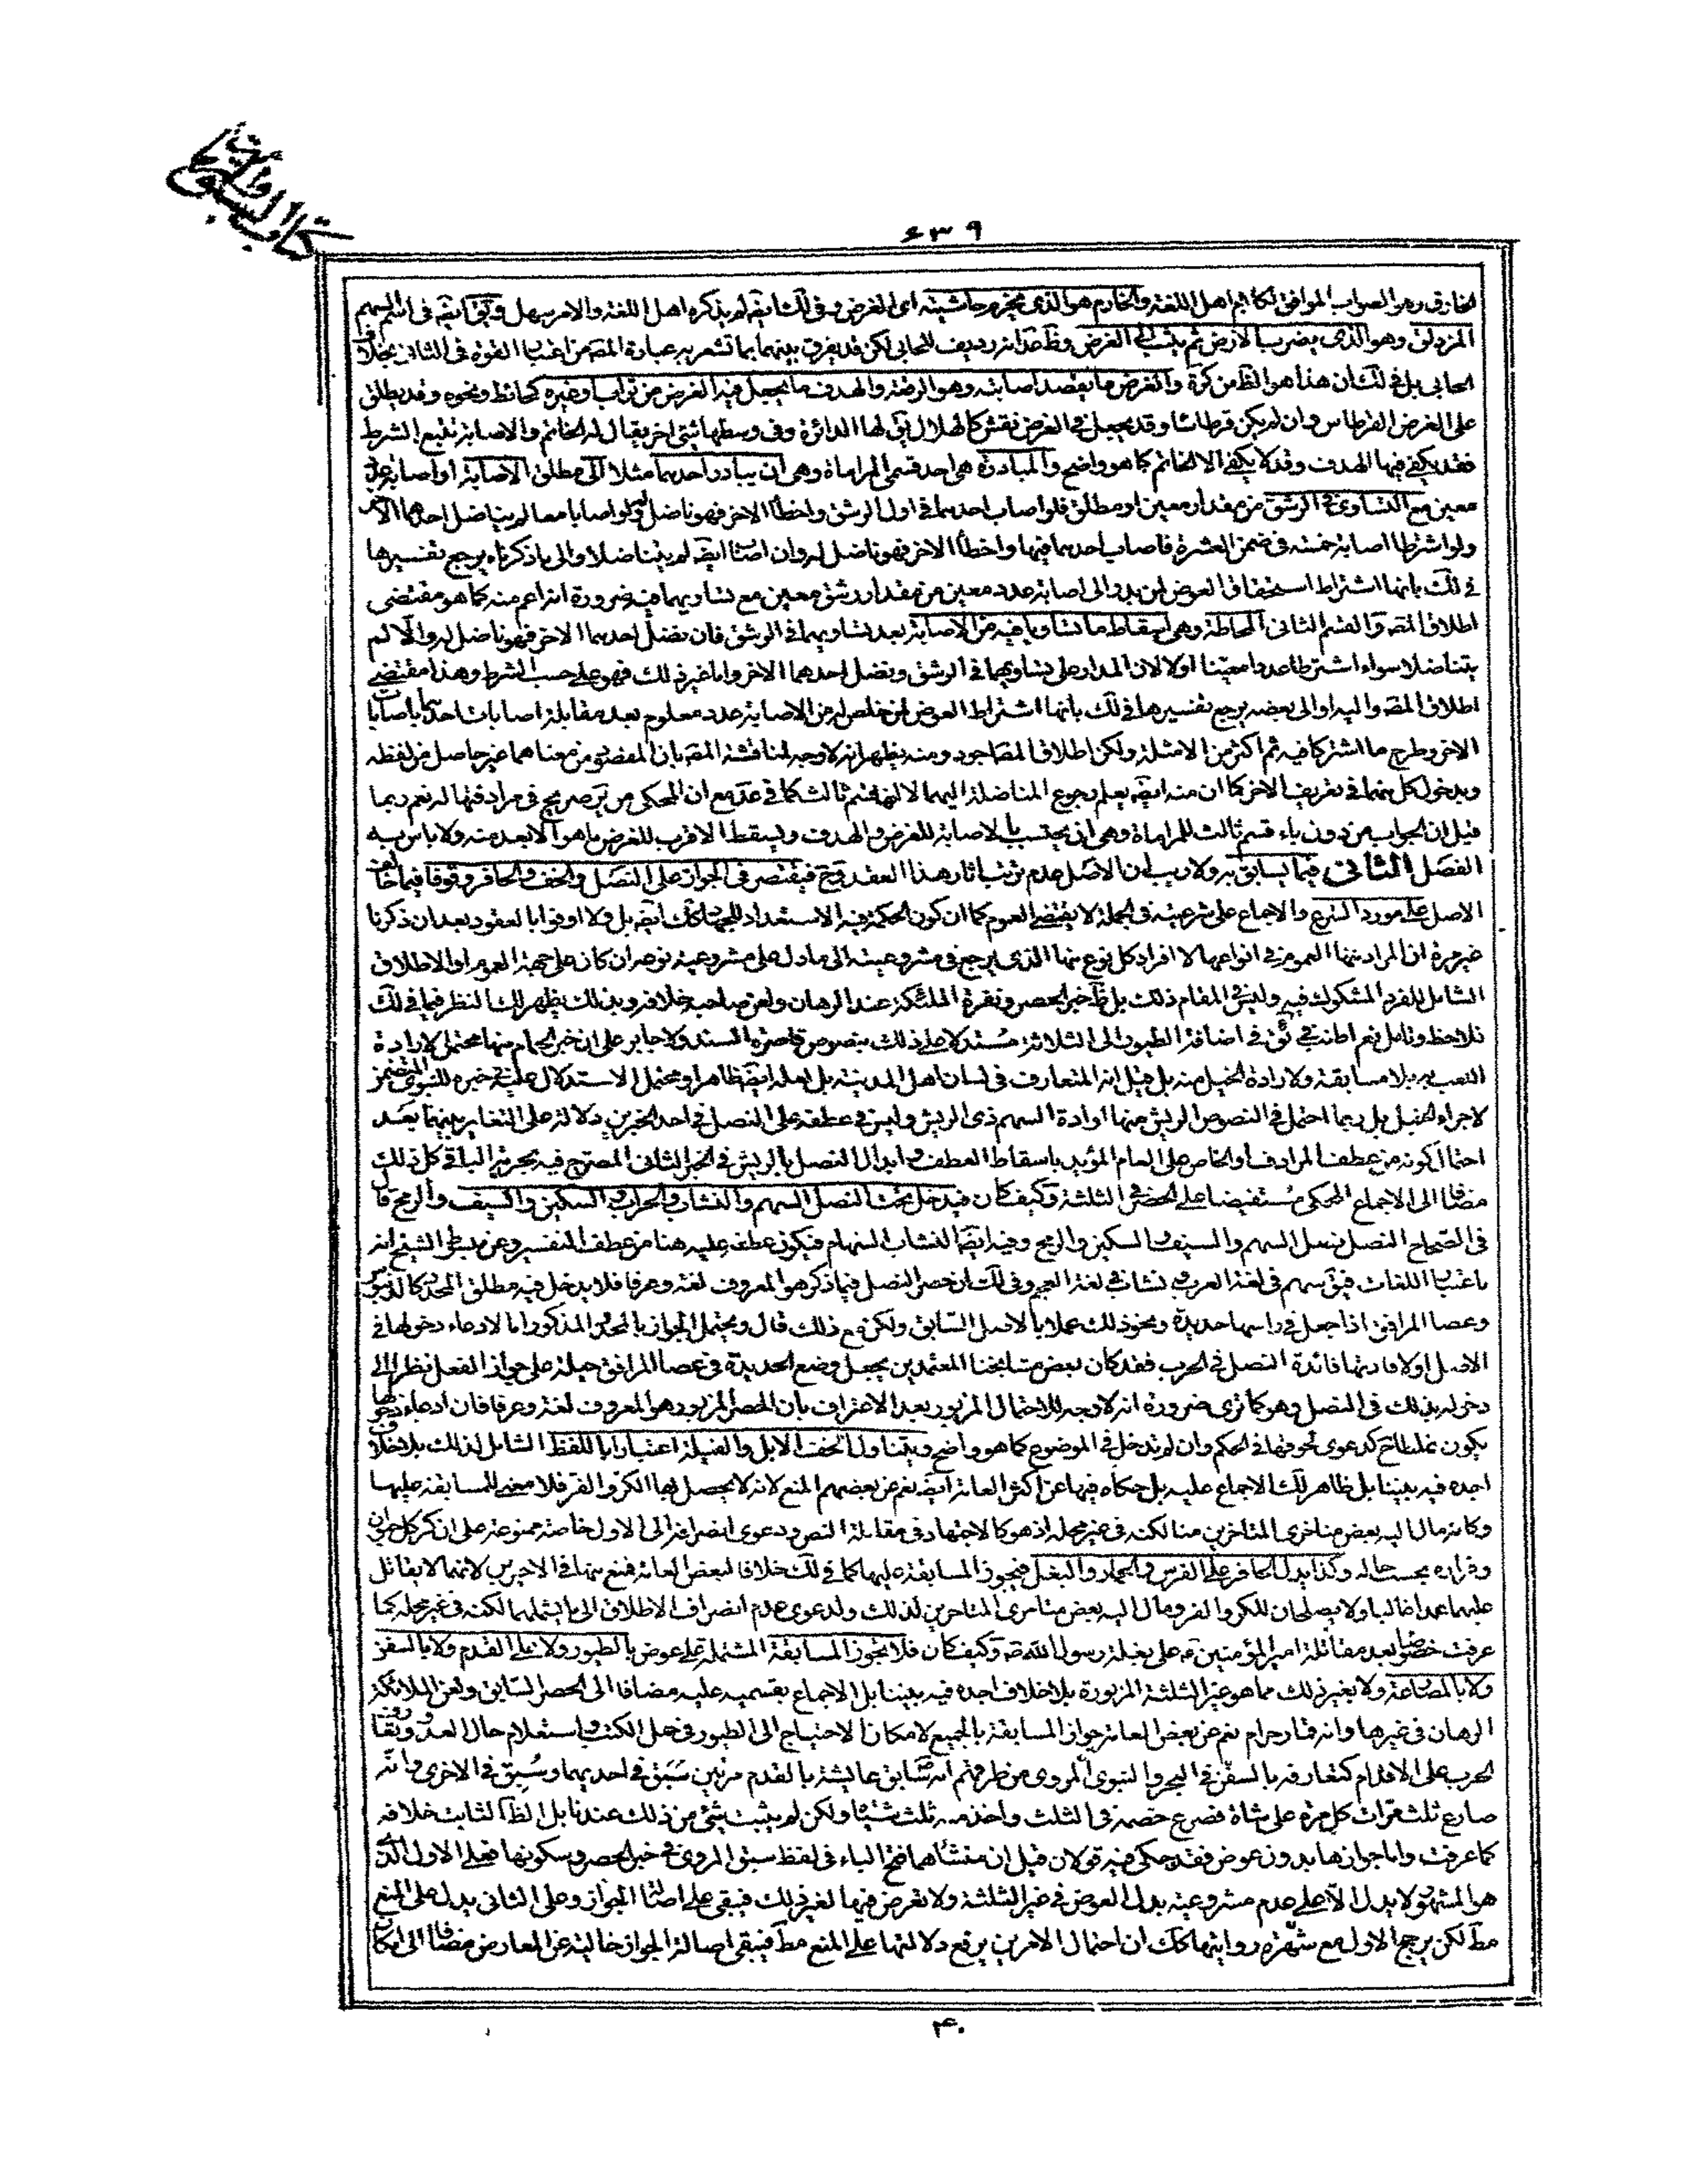 كتاب السبق والرماية
٦٣٩
الخارق وهو الصواب الموافق لكلام اهل اللغة والخارم هو الذى يخرم حاشيته اى الغرض وفى لك ايضه لم يذكره اهل اللغة والامر سهل ويق ايضه فى السهم
المزدلق وهو الذى يضرب الارض ثم يثب الى الغرض وظ انه رديف للحابى لكن قد يفرق بينهما بما تشعر به عبارة المصه من اعتبار القوة فى الثانى بخلاف
الحابى بل فى لك ان هذا هو الظ من كرة والغرض ما يقصد اصابته وهو الرقعة والهدف ما يجعل فيه الغرض من تراب وغيره كحائط ونحوه وقد يطلق
على الغرض القرطاس وان لم يكن قرطاسا وقد يجعل فى الغرض نقش كالهلال يق لها الدائرة وفى وسطها شئ اخر يقال له الخاتم والاصابة تتبع الشرط
فقد يكفى فيها الهدف وقد لا يكفى الا الخاتم كما هو واضح والمبادرة هى احد قسمى المراماة وهى ان يبادر احدهما مثلا الى مطلق الاصابة او اصابة عدد
معين مع التساوى فى الرشق من مقدار معين او مطلق فلو اصاب احدهما فى اول الرشق واخطأ الاخر فهو ناضل له ولو اصابا معا لم يناضل احدهما الاخر
ولو اشترطا اصابة خمسة فى ضمن العشرة فاصاب احدهما فيها واخطأ الاخر فهو ناضل له وان اصابا ايضه لم يتناضلا والى ما ذكرناه يرجع تفسيرها
فى لك بانها اشتراط استحقاق العوض لمن بدر الى اصابة عدد معين من مقدار رشق معين مع تساويهما فيه ضرورة انه اعم منه كما هو مقتضى
اطلاق المصه والقسم الثانى المحاطة وهى اسقاط ما تساويا فيه من الاصابة بعد تساويهما فى الرشق فان نضل احدهما الاخر فهو ناضل له والا لم
يتناضلا سواء اشترطا عددا معينا اولا لان المدار على تساويهما فى الرشق ونضل احدهما الاخر واما غير ذلك فهو على حسب الشرط وهذا مقتضى
اطلاق المصه واليه او الى بعضه يرجع تفسيرها فى لك بانها اشتراط العوض لمن خلص له من الاصابة عدد معلوم بعد مقابلة اصابات احدهما باصابات
الاخر وطرح ما اشتركا فيه ثم اكثر من الامثلة ولكن اطلاق المصه اجود ومنه يظهر انه لا وجه لمناقشة المصه بان المقصود من معناهما غير حاصل من لفظه
ويدخول كل منهما فى تعريف الاخر كما ان منه ايضه يعلم رجوع المناضلة اليهما لا انها قسم ثالث كما فى عد مع ان المحكى من ير صريح فى مرادفتها له نعم ربما
قيل ان الجواب من دون باء قسم ثالث للمراماة وهى ان يحتسب بالاصابة للغرض والهدف ويسقط الاقرب للغرض ما هو الابعد منه ولا باس به
الفصل الثانى فيما يسابق به ولا ريب ان الاصل عدم ترتب اثار هذا العقد وح فيقتصر فى الجواز على النصل والخف والحافر وقوفا فيما خالف
الاصل على مورد الشرع والاجماع على شرعيته فى الجملة لا يقتضى العموم كما ان كون الحكمة فيه الاستعداد للجهاد كك ايضه بل ولا اوفوا بالعقود بعد ان ذكرنا
غير مرة ان المراد منها العموم فى انواعها لا افراد كل نوع منها الذى يرجع فى مشروعيته الى ما دل على مشروعية نوعه ان كان على جهة العموم او الاطلاق
الشامل للفرد المشكوك فيه وليس فى المقام ذلك بل ظ خبر الحصر ونفرة الملئكة عند الرهان ولعن صاحبه خلافه وبذلك يظهر لك النظر فيما فى لك
فلاحظ وتامل نعم اطنب فى ئق فى اضافة الطيور الى الثلاثة مستدلا على ذلك بنصوص قاصرة السند ولا جابر على ان خبر الحمام منها محتمل لارادة
اللعب به بلا مسابقة ولارادة الخيل منه بل قيل انه المتعارف فى لسان اهل المدينة بل لعله ايضه ظاهر او محتمل الاستدلال عليه فى خبره للنبوى المتضمن
لاجراء الخيل بل ربما احتمل فى النصوص الريش منها ارادة السهم ذى الريش وليس فى عطفه على النصل فى احد الخبرين دلالة على التغاير بينهما بعد
احتمال كونه من عطف المرادف او الخاص على العام المؤيد باسقاط العطف وابدال النصل بالريش فى الخبر الثانى المصرح فيه بحرمة الباقى كل ذلك
مضافا الى الاجماع المحكى مستفيضا على الحصر فى الثلثة وكيف كان فيدخل تحت النصل السهم والنشاب والحراب والسكين والسيف والرمح قال
فى الصحاح النصل نصل السهم والسيف والسكين والرمح وفيه ايضا النشاب السهام فيكون عطفه عليه هنا من عطف التفسير وعن بسط الشيخ انه
باعتبار اللغات فيق سهم فى لغة العرب ونشاب فى لغة العجم وفى لك ان حصر النصل فيما ذكر هو المعروف لغة وعرفا فلا يدخل فيه مطلق المحدد كالدبوس
وعصا المرافق اذا جعل فى راسها حديدة ونحو ذلك عملا بالاصل السابق ولكن مع ذلك قال ويحتمل الجواز بالمحدد المذكور اما لادعاء دخولها فى
الاصل او لافادتها فائدة النصل فى الحرب فقد كان بعض مشايخنا المعتمدين يجعل وضع الحديدة فى عصا المرافق حيلة على جواز الفعل نظرا الى
دخوله بذلك فى النصل وهو كما ترى ضرورة انه لا وجه للاحتمال المزبور بعد الاعتراف بان الحصر المزبور هو المعروف لغة وعرفا فان ادعاء دخولها
يكون غلطا ح كدعوى لحوقها فى الحكم وان لم تدخل فى الموضوع كما هو واضح ويتناول الخف الابل والفيلة اعتبارا باللفظ الشامل لذلك بلا خلاف
اجده فيه بيننا بل ظاهر لك الاجماع عليه بل حكاه فيها عن اكثر العامة ايضه نعم عن بعضهم المنع لانه لا يحصل بها الكر والفر فلا معنى للمسابقة عليها
وكانه مال اليه بعض متاخرى المتاخرين منا لكنه فى غير محله اذ هو كالاجتهاد فى مقابلة النص ودعوى انصرافه الى الاول خاصة ممنوعة على ان كر كل حيوان
وفراره بحسب حاله وكذا يدل الحافر على الفرس والحمار والبغل فيجوز المسابقة عليها كما فى لك خلافا لبعض العامة فمنع منها فى الاخيرين لانهما لا يقاتل
عليهما غالبا ولا يصلحان للكر والفر ومال اليه بعض متاخرى المتاخرين لذلك ولدعوى عدم انصراف الاطلاق الى ما يشملهما لكنه فى غير محله كما
عرفت خصوصا بعد مقاتلة امير المؤمنين ع على بغلة رسول الله ص وكيف كان فلا يجوز المسابقة المشتملة على عوض بالطيور ولا على القدم ولا بالسفن
ولا بالمصارعة ولا بغير ذلك مما هو غير الثلثة المزبورة بلا خلاف اجده فيه بيننا بل الاجماع بقسميه عليه مضافا الى الحصر السابق ولعن الملائكة
الرهان فى غيرها وانه قمار حرام نعم عن بعض العامة جواز المسابقة بالجميع لامكان الاحتياج الى الطيور فى حمل الكتب واستعلام حال العدو واتفاق
الحرب على الاقدام كتعارفه بالسفن فى البحر والنبوى المروى من طرقهم انه ص سابق عايشة بالقدم مرتين سَبَق فى احديهما وسُبِق فى الاخرى وانه
صارع ثلث مرات كل مرة على شاة فصرع خصمه فى الثلث واخذ منه ثلث شياه ولكن لم يثبت شئ من ذلك عندنا بل الظ الثابت خلافه
كما عرفت واما جوازها بدون عوض فقد حكى فيه قولان قيل ان منشاهما فتح الباء فى لفظ سبق المروى فى خبر الحصر وسكونها فعلى الاول الذى
هو المشهور لا يدل الا على عدم مشروعية بدل العوض فى غير الثلثة ولا تعرض فيها لغير ذلك فيبقى على اصالة الجواز وعلى الثانى يدل على المنع
مط لكن يرجح الاول مع شهرة روايتها كك ان احتمال الامرين يرفع دلالتها على المنع مط فيبقى اصالة الجواز خالية عن المعارض مضافا الى امكان
٤٠